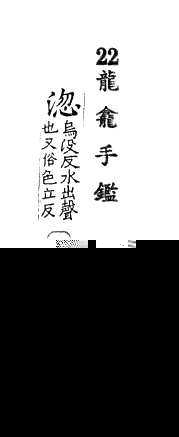 22龍龕手鑑
淴烏没反水出聲
也又俗色立反